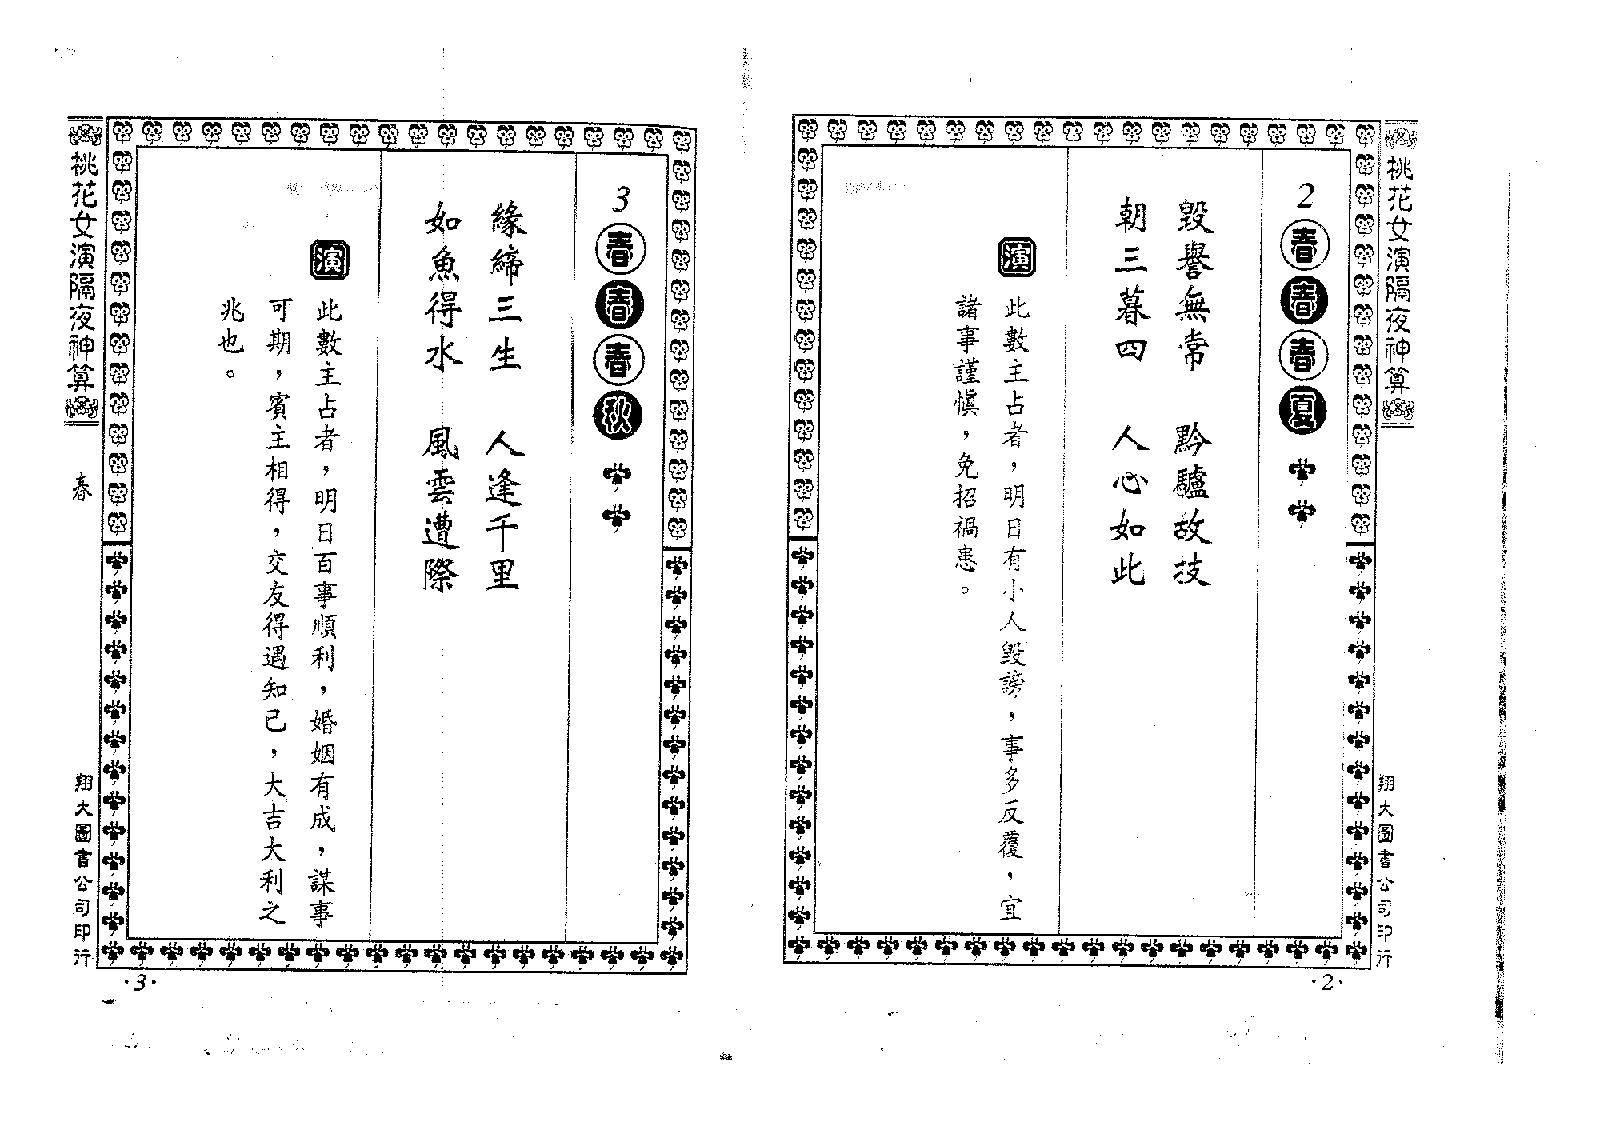 桃花女演隔夜神算
翔大圖書公司印行
2
春春春夏
毀譽無常　黔驢故技
朝三暮四　人心如此
演
此數主占者，明日有小人毀謗，事多反覆，宜
諸事謹慎，免招禍患。
·2·
3
春春春秋
緣締三生　人逢千里
如魚得水　風雲遭際
演
此數主占者，明日百事順利，婚姻有成，謀事
可期，賓主相得，交友得遇知己，大吉大利之
兆也。
桃花女演隔夜神算
春
翔大圖書公司印行
·3·